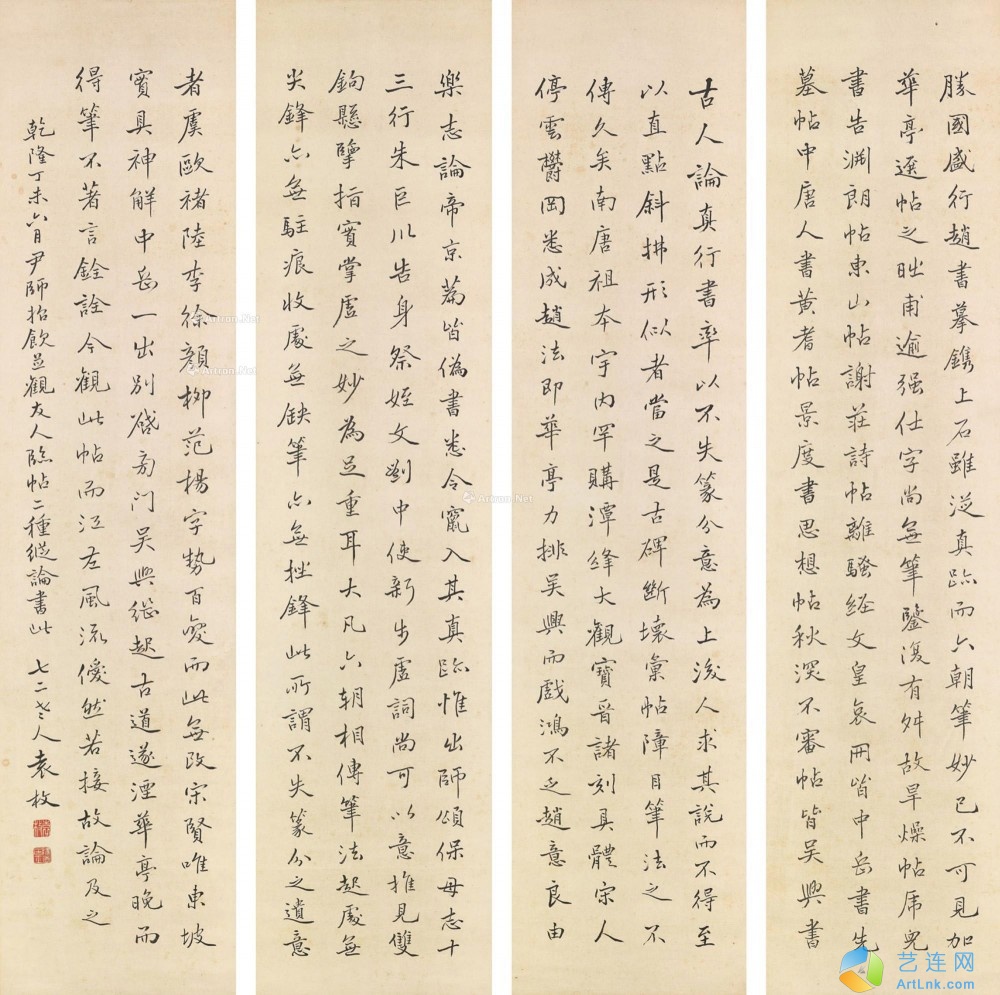 古人論真行書率以不失篆分意為上後人求其說而不得至
以直點斜拂形似者當之是古碑斷壞彙帖障目筆法之不
傳久矣南唐祖本宇內罕購潭絳大觀寶晉諸刻具體宋人
停雲鬱岡悉成趙法即華亭力排吳興而戲鴻不乏趙意良由
勝國盛行趙書摹鐫上石雖泛真跡而六朝筆妙已不可見加
華亭選帖之時甫逾强仕字尚無筆鑒復有舛故旱燥帖虎兒
書告淵朗帖東山帖謝莊詩帖離騷經文皇哀冊皆中岳書先
墓帖中唐人書黃耆帖景度書思想帖秋深不審帖皆吳興書
樂志論帝京篇皆偽書悉令竄入其真跡惟出師頌保母志十
三行朱巨川告身祭姪文劉中使新步虛詞尚可以意推見雙
鉤懸擘指實掌虛之妙為足重耳大凡六朝相傳筆法起處無
尖鋒亦無駐痕收處無缺筆亦無挫鋒此所謂不失篆分之遺意
者虞歐褚陸李徐顏柳范楊字勢百變而此無改宋賢唯東坡
實具神解中岳一出別啟旁门吳興繼起古道遂湮華亭晚而
得筆不著言銓詮今觀此帖而江左風流僾然若接故論及之
乾隆丁未六月尹師招飲並觀友人臨帖二種縱論書此 七二老人袁枚
艺连网
ArtLnk.com
Artron.Net